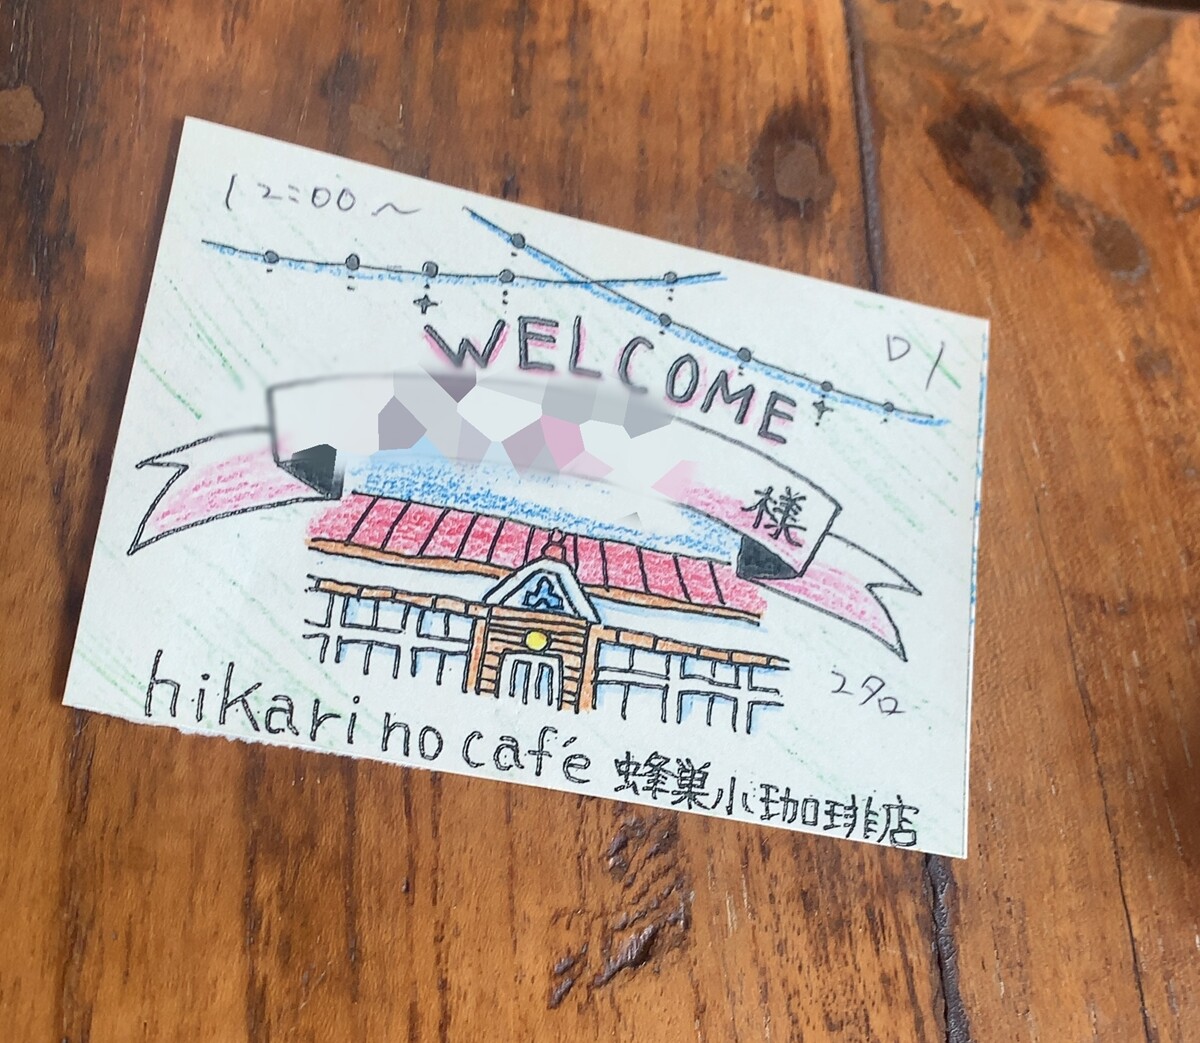 12:00～
D1
WELCOME
様
2名
hikari no café 蜂巣小珈琲店